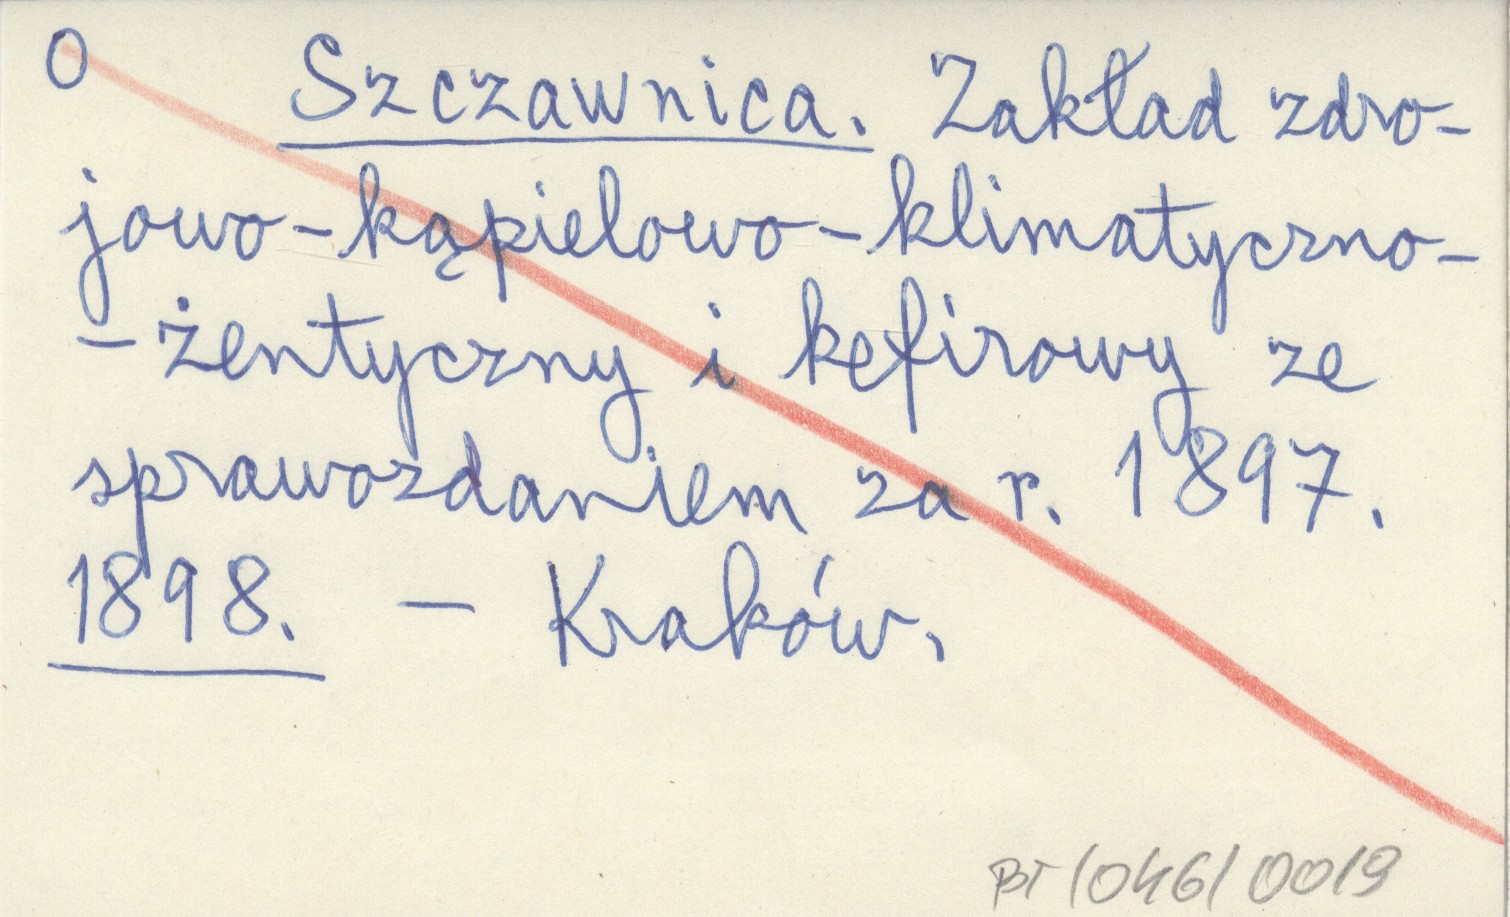 O Szczawnica. Zakład zdro-
jowo-kąpielowo-klimatyczno-
-żentyczny i kefirowy ze
sprawozdaniem za r. 1897.
1898. — Kraków.
BT/046/0019